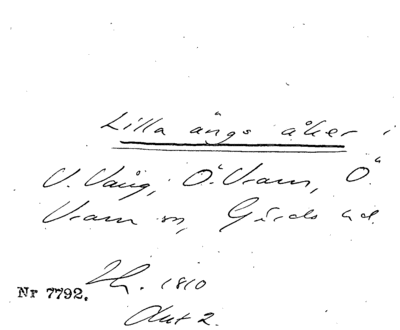 Lilla ängs åker i
V. Vång, Ö. Vram, Ö.
Vram sn, Gärds hd.
1810
Nr 7792.
Akt 2.